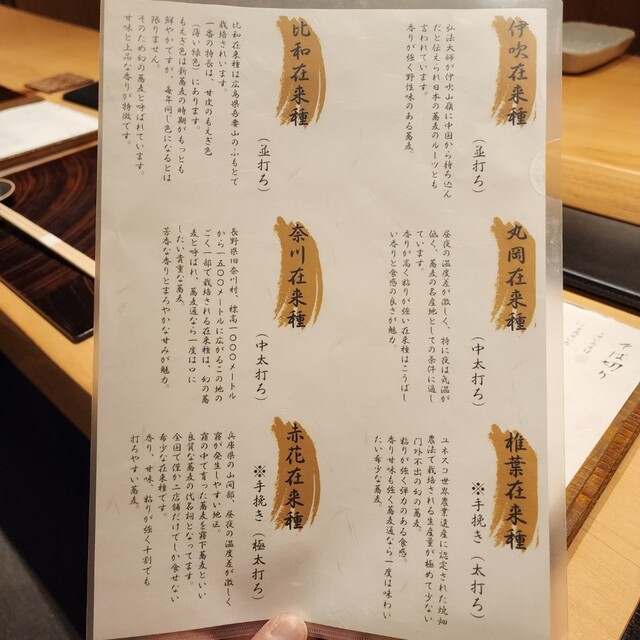 伊吹在来種
(並打ち)
弘法大師が伊吹山嶺に中国から持ち込ん
だと伝えられ日本の蕎麦のルーツとも
言われています。
香りが強く野性味のある蕎麦。
比和在来種
(並打ち)
比和在来種は広島県吾妻山のふもとで
栽培されています。
一番の特長は、甘皮のもえぎ色
(薄い緑色)にあります。
もえぎ色は新蕎麦の時期がもっとも
鮮やかですが、毎年同じ色になるとは
限りません。
そのため幻の蕎麦と呼ばれています。
甘味と上品な香りが特徴です。
丸岡在来種
(中太打ち)
昼夜の温度差が激しく、特に夜は気温が
低く、蕎麦の名産地としての条件に適し
ています。
香りが高く粘りが強い在来種はこうばし
い香りと食感の良さが魅力。
奈川在来種
(中太打ち)
長野県旧奈川村、標高一〇〇〇メートル
から一五〇〇メートルに広がるこの地の
ごく一部で栽培される在来種は、幻の蕎
麦と呼ばれ、蕎麦通なら一度は口に
したい貴重な蕎麦。
芳香な香りとまろやかな甘みが魅力。
椎葉在来種
※手挽き(太打ち)
ユネスコ世界農業遺産に認定された焼畑
農法で栽培される生産量が極めて少ない
門外不出の幻の蕎麦。
粘りが強く弾力のある食感。
香り甘味も強く蕎麦通なら一度は味わい
たい希少な蕎麦。
赤花在来種
※手挽き(極太打ち)
兵庫県の山間部、昼夜の温度差が激しく
霧が発生しやすい地区。
霧の中で育った蕎麦を霧下蕎麦といい
良質な蕎麦の代名詞となってます。
全国で僅か二店舗だけでしか食せない
希少な在来種です。
香り、甘味、粘りが強く十割でも
打ちやすい蕎麦。
そば切り